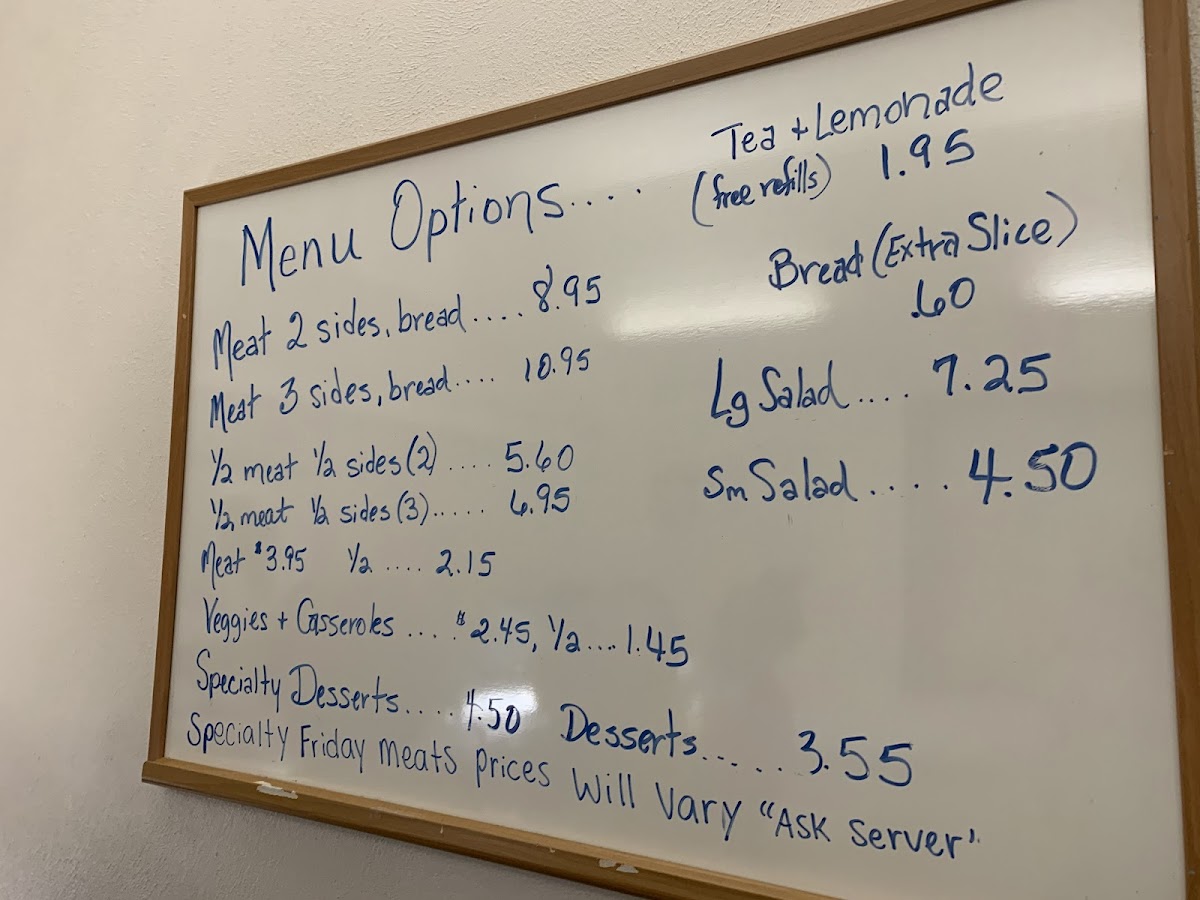 Menu Options....
Meat 2 sides, bread.... 8.95
Meat 3 sides, bread.... 10.95
1/2 meat 1/2 sides (2) .... 5.60
1/2 meat 1/2 sides (3)..... 6.95
Meat $3.95 1/2 .... 2.15
Veggies + Casseroles .... $2.45, 1/2....1.45
Specialty Desserts.... 4.50 Desserts..... 3.55
Specialty Friday meats prices will vary "Ask server"
Tea + Lemonade
(free refills) 1.95
Bread (Extra Slice)
.60
Lg Salad.... 7.25
Sm Salad.... 4.50